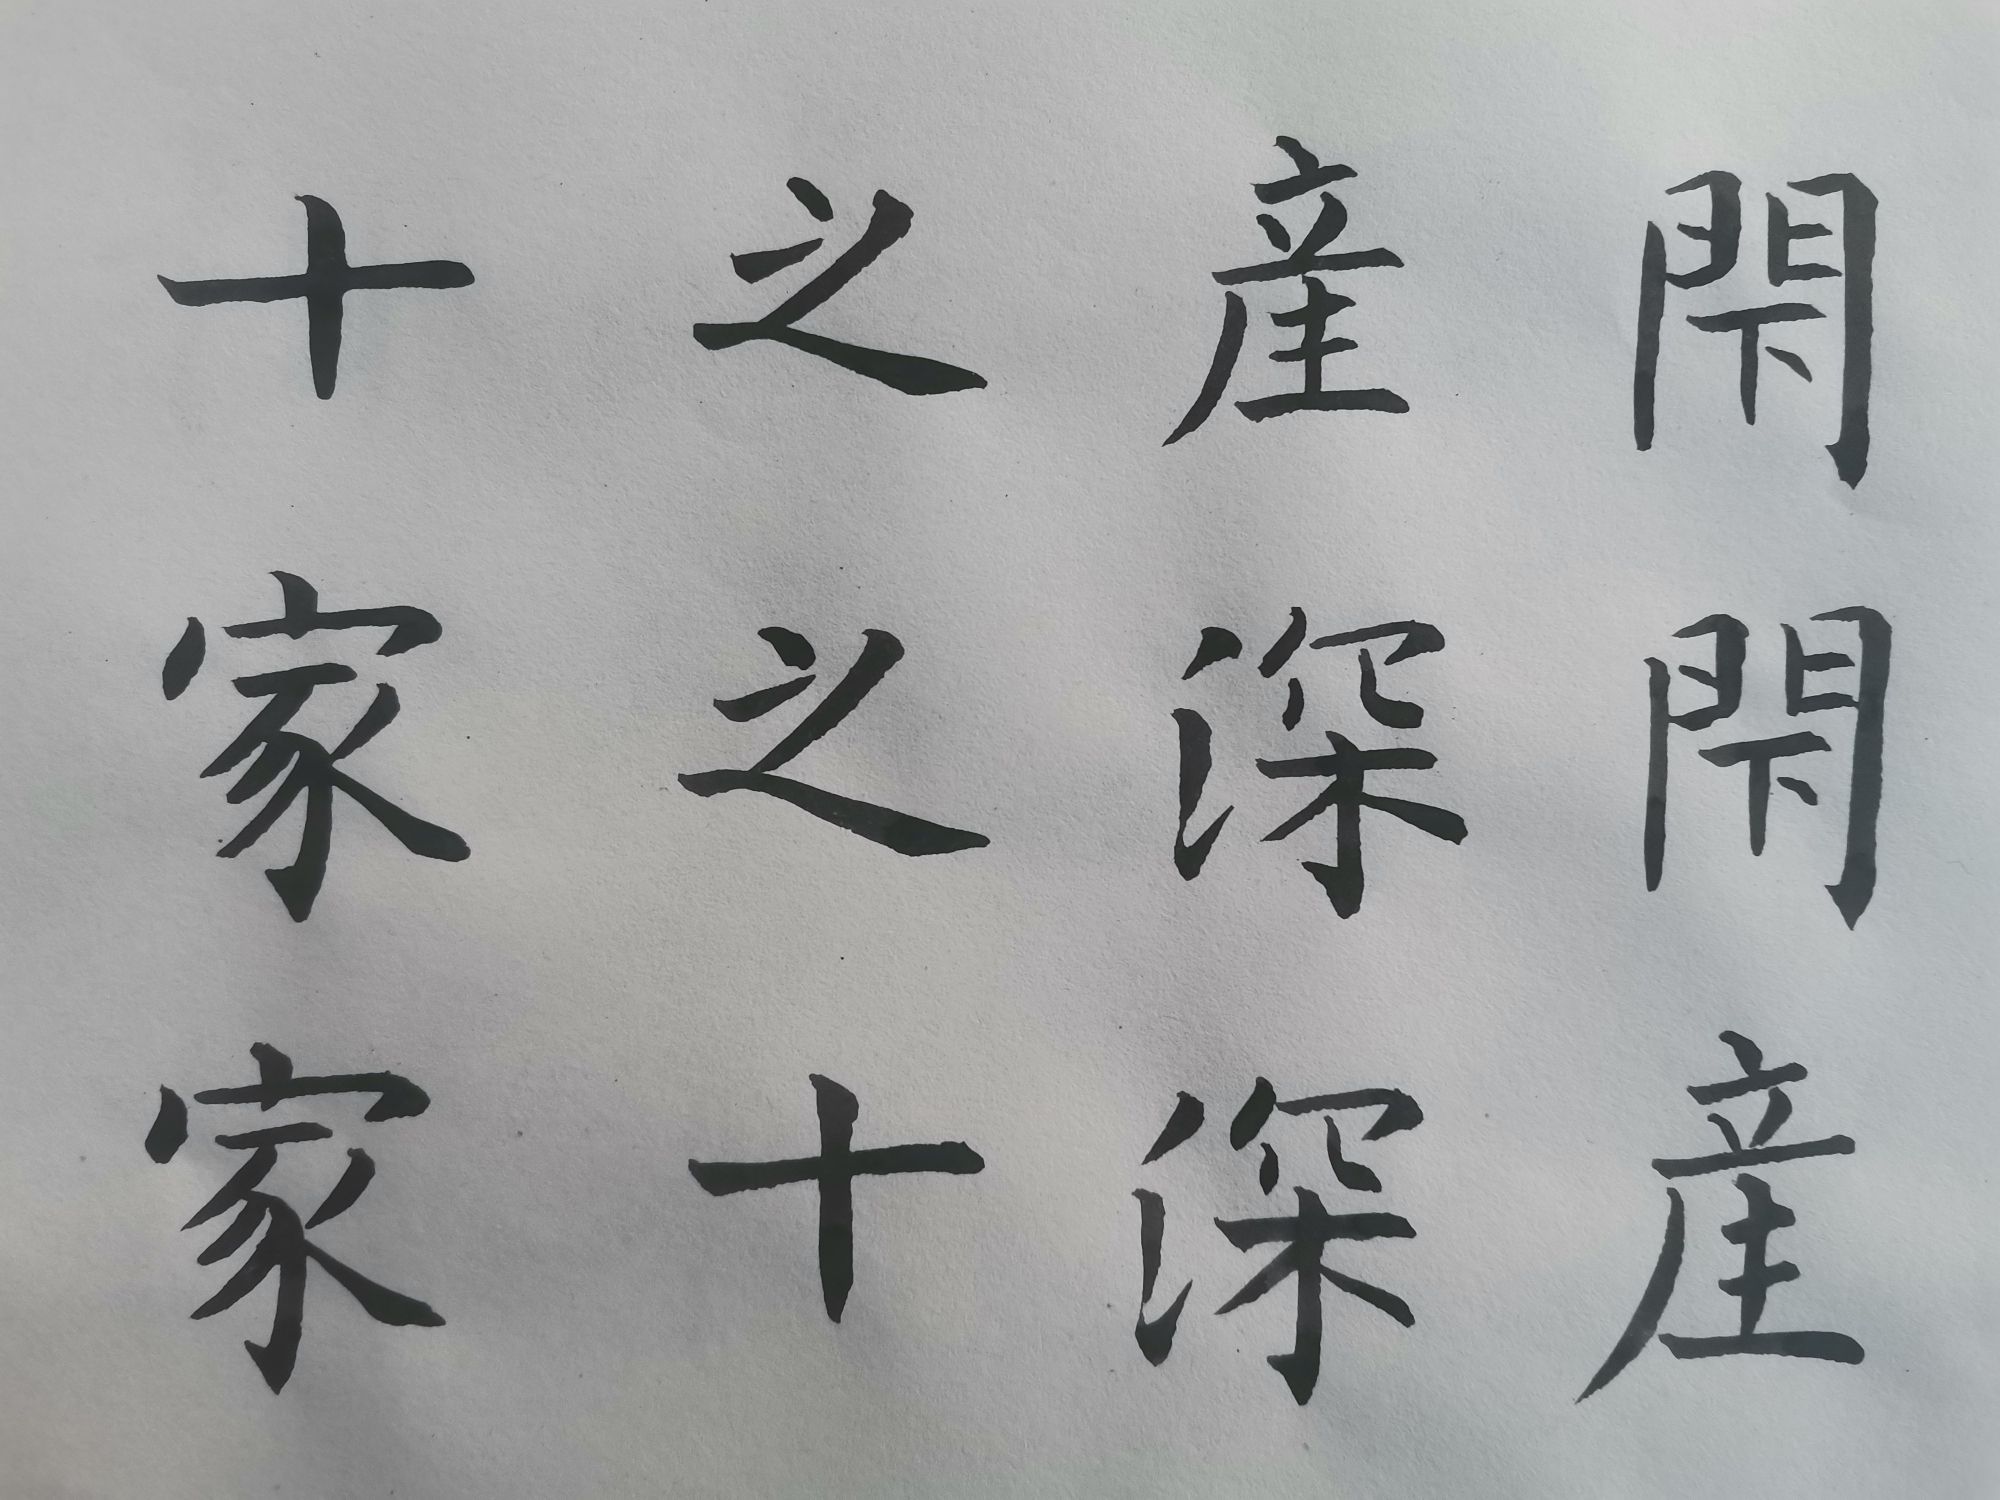 閇閇産
産深深
之之十
十家家